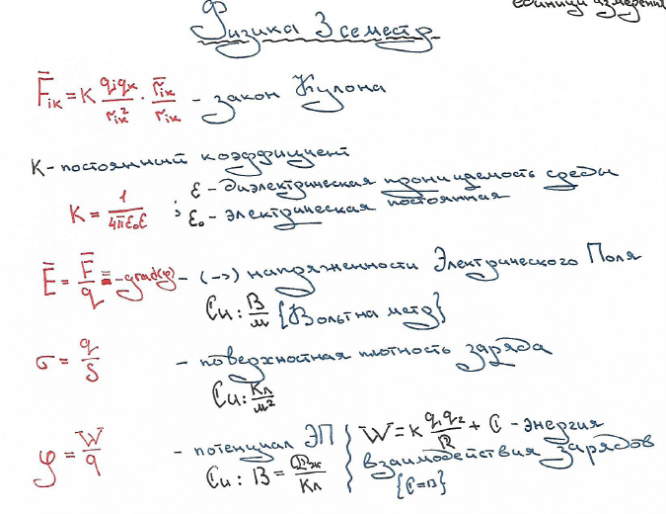 единицы измерения
Физика 3 семестр
F̄ᵢₖ = K qᵢqₖ/rᵢₖ² · r̄ᵢₖ/rᵢₖ - закон Кулона
K - постоянный коэффициент
K = 1/4πε₀ε ; ε - диэлектрическая проницаемость среды
ε₀ - электрическая постоянная
Ē = F̄/q = -grad(φ) - (->) напряженности Электрического Поля
Си: В/м {Вольт на метр}
σ = q/S - поверхностная плотность заряда
Си: Кл/м²
φ = W/q - потенциал ЭП } W = K q₁q₂/R + C - энергия
Си: В = Дж/Кл взаимодействия зарядов